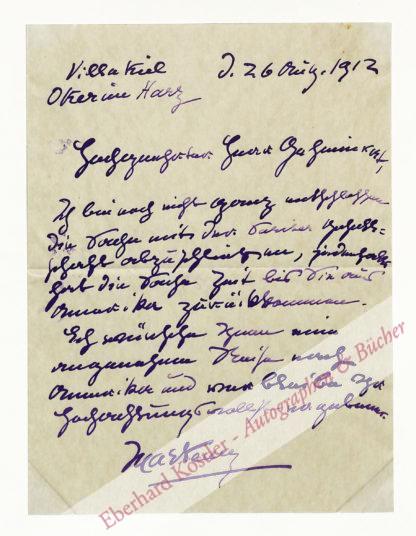 Villa Kiel d. 26 Aug. 1912
Oker im Harz
Hochgeehrter Herr Geheimrat,
Ich bin noch nicht ganz entschlossen
die Sache mit der Pariser Gesell-
schaft abzuschließen, jedenfalls
hat die Sache Zeit bis Sie aus
Amerika zurückkommen.
Ich wünsche Ihnen eine
angenehme Reise nach
Amerika und
hochachtungsvollst ergebener
Eberhard Köstler - Autographen & Bücher